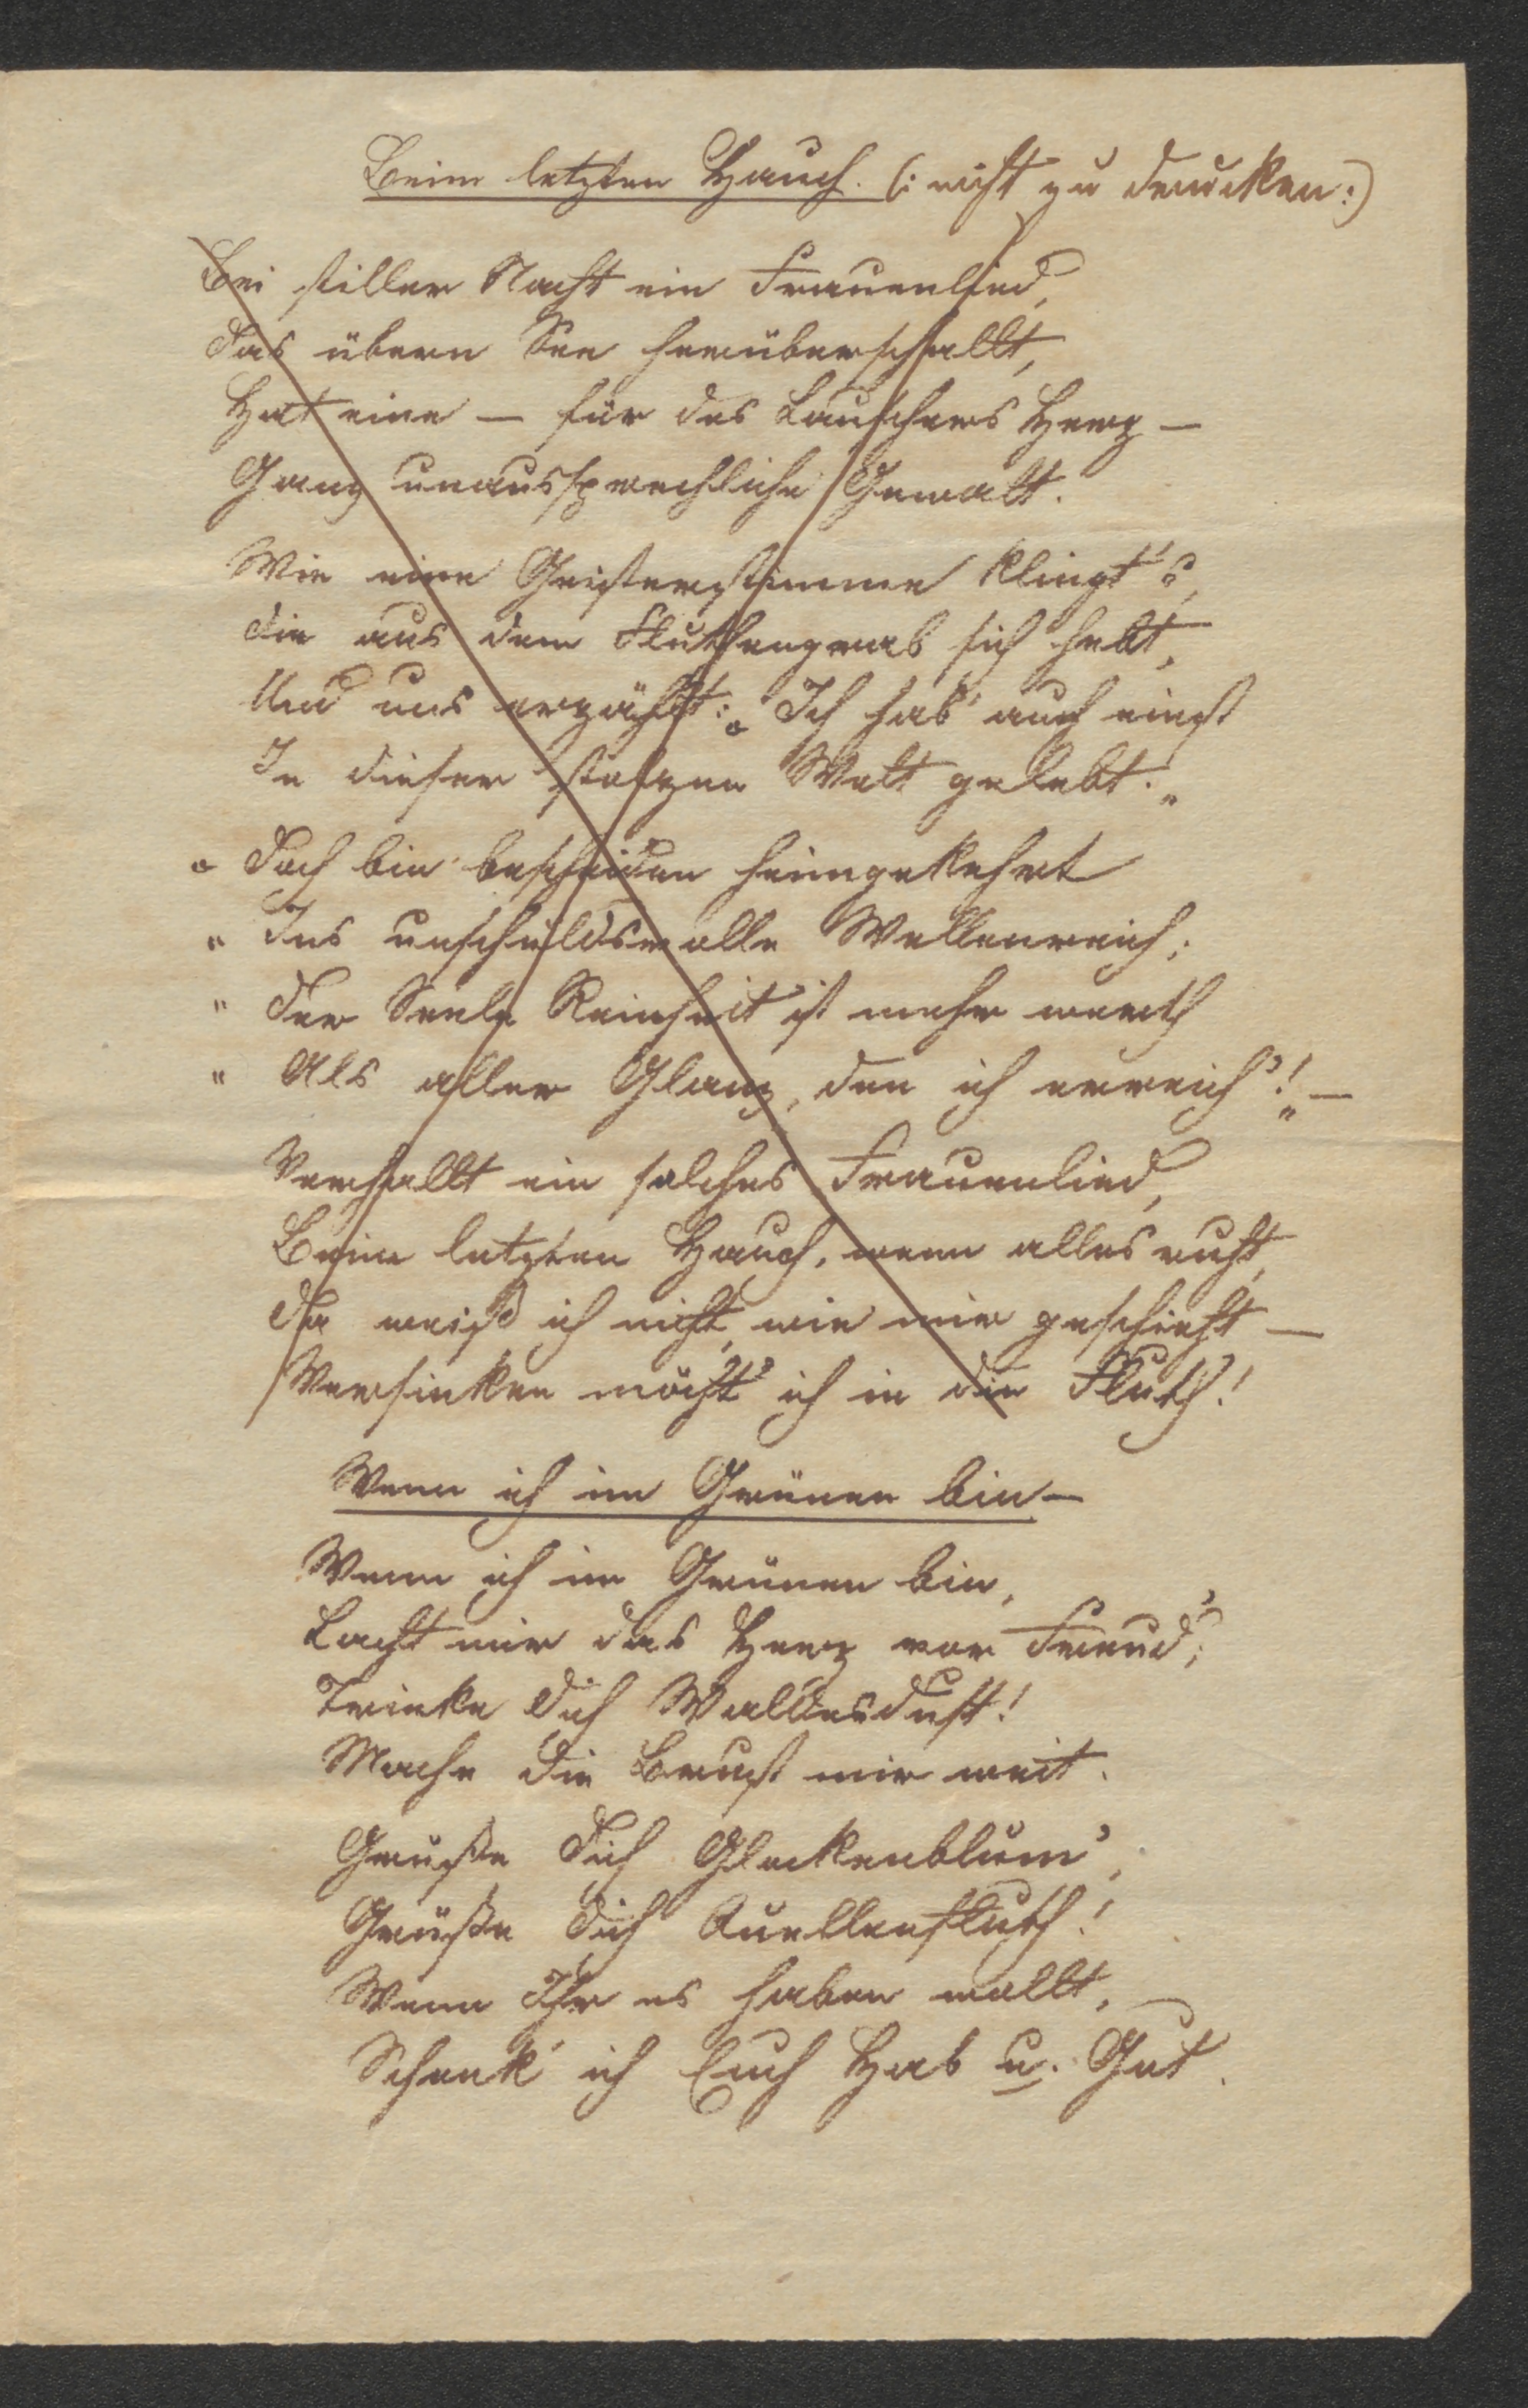 Beim letzten Hauch. (: nicht zu drucken :)
Bei stiller Nacht ein Frauenlied,
Das übern See herüberschallt,
Hat eine — für des Lauschers Herz —
Ganz unaussprechliche Gewalt.
Wie eine Geisterstimme klingt's,
Die aus dem Fluthengrab sich hebt,
Und uns erzählt: „Ich hab' auch einst
In dieser stolzen Welt gelebt.“
„Doch bin bescheiden heimgekehrt
„Ins unschuldsvolle Wellenreich;
„Der Seele Reinheit ist mehr werth
„Als aller Glanz, den ich erreich'!“ —
Verhallt ein solches Frauenlied,
Beim letzten Hauch, wenn alles ruht,
Da weiß ich nicht, wie mir geschieht —
Versinken möcht' ich in die Fluth!
Wenn ich im Grünen bin —
Wenn ich im Grünen bin,
Lacht mir das Herz vor Freud';
Trinke Dich Waldesduft!
Mache die Brust mir weit.
Grüße Dich Glockenblum',
Grüße Dich Quellenfluth!
Wenn Ihr es haben wollt, —
Schenk' ich Euch Hab u. Gut.